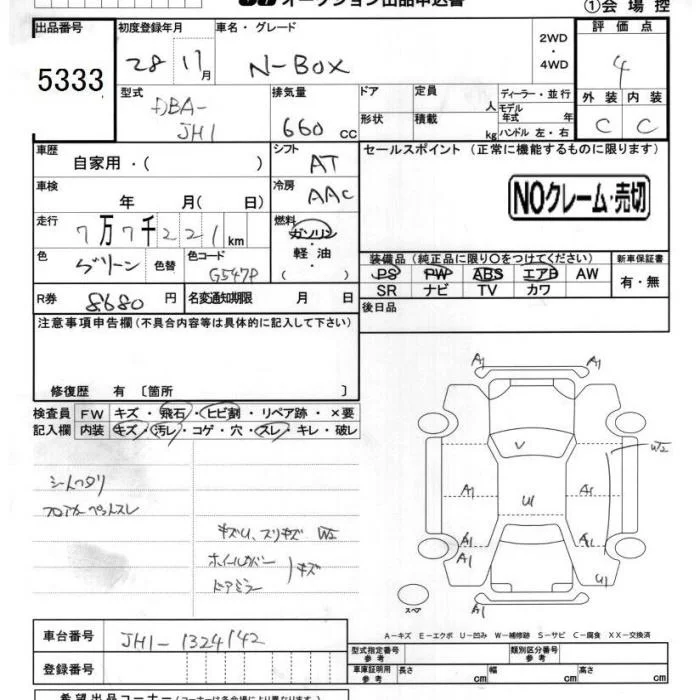 オークション出品申込書
①会場控
出品番号 初度登録年月 車名・グレード 評価点
5333 28 11月 N-BOX 2WD・4WD 4
型式 排気量 ドア 定員 人 ディーラー・並行 外装 内装
DBA-JH1 660cc 形状 積載 kg モデル年式 年 C C
ハンドル 左・右
車歴 シフト セールスポイント (正常に機能するものに限ります)
自家用・( ) AT
車検 冷房 NOクレーム・売切
年 月(日) AAC
走行 燃料
7万7千221km ガソリン・軽油( )
色 色替 色コード 装備品(純正品に限り○をつけてください) 新車保証書
グリーン G547P PS PW ABS エアB AW 有・無
SR ナビ TV カワ
R券 8680円 名変通知期限 月 日 後日品
注意事項申告欄(不具合内容等は具体的に記入して下さい)
修復歴 有〔箇所 〕
検査員 FW キズ・飛石・ヒビ割・リペア跡・×要
記入欄 内装 キズ・汚レ・コゲ・穴・スレ・キレ・破レ
シートヘタリ
フロアカーペットスレ
キズU、スリキズ W2
ホイールカバー
ドアミラー
キズ
A1 A1
V W2
A1 U1 A1
A1 A1
A1 U1
A1
スペア
A-キズ E-エクボ U-凹み W-補修跡 S-サビ C-腐食 XX-交換済
車台番号 JH1-1324142 型式指定番号 参考 類別区分番号 参考
登録番号 車庫証明用 参考 長さ cm 幅 cm 高さ cm
希望出品コーナー(コーナーは各会場により異なります)